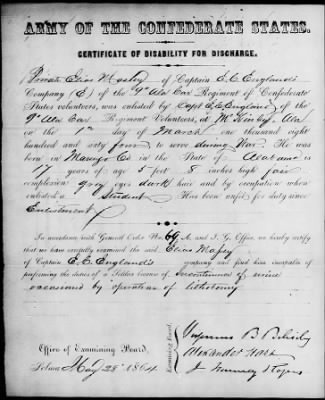 ARMY OF THE CONFEDERATE STATES.
CERTIFICATE OF DISABILITY FOR DISCHARGE.
Private Elias of Captain E. C. England's
Company (E) of the 9th Ala Cav Regiment of Confederate
States volunteers, was enlisted by Capt E. C. England of the
9th Ala Cav Regiment Volunteers, at Ala
on the 1st day of March one thousand eight
hundred and sixty four to serve during War. He was
born in Marengo Co in the State of Alabama is
17 years of age 5 feet 8 inches high fair
complexion gray eyes dark hair and by occupation when
enlisted a Student Has been unfit for duty since
Enlistment
In accordance with General Order No. 69 A. and I. G. Office, we hereby certify
that we have carefully examined the said Elias
of Captain E. C. England's company and find him incapable of
performing the duties of a Soldier because of Incontinence of urine
occasioned by operation of lithotomy
Examining Board.
B
Alexander Hart
J
Office of Examining Board,
Selma May 28 1864